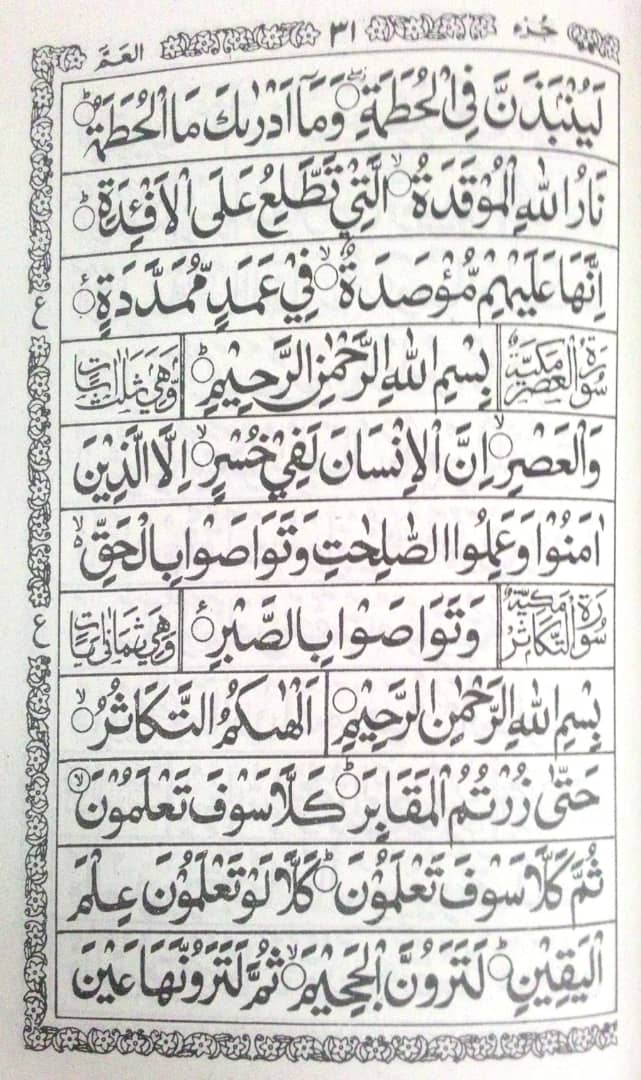 جُزء ٣١ العـمّ
لَيُنْۢبَذَنَّ فِى الْحُطَمَةِ ۖ وَمَاۤ اَدْرٰىكَ مَا الْحُطَمَةُ ؕ
نَارُ اللّٰهِ الْمُوْقَدَةُ ۙ الَّتِيْ تَطَّلِعُ عَلَى الْاَفْـِٕدَةِ ؕ
اِنَّهَا عَلَيْهِمْ مُّؤْصَدَةٌ ۙ فِيْ عَمَدٍ مُّمَدَّدَةٍ ۠
سُوْرَةُ الْعَصْرِ مَكِّيَّةٌ بِسْمِ اللّٰهِ الرَّحْمٰنِ الرَّحِيْمِ ؕ وَّهِيَ ثَلٰثُ اٰيَاتٍ
وَالْعَصْرِ ۙ اِنَّ الْاِنْسَانَ لَفِيْ خُسْرٍ ۙ اِلَّا الَّذِيْنَ
اٰمَنُوْا وَعَمِلُوا الصّٰلِحٰتِ وَتَوَاصَوْا بِالْحَقِّ ۙ
سُوْرَةُ التَّكَاثُرِ مَكِّيَّةٌ وَتَوَاصَوْا بِالصَّبْرِ ۠ وَّهِيَ ثَمَانِيْ اٰيَاتٍ
بِسْمِ اللّٰهِ الرَّحْمٰنِ الرَّحِيْمِ اَلْهٰىكُمُ التَّكَاثُرُ ۙ
حَتّٰى زُرْتُمُ الْمَقَابِرَ ؕ كَلَّا سَوْفَ تَعْلَمُوْنَ ۙ
ثُمَّ كَلَّا سَوْفَ تَعْلَمُوْنَ ؕ كَلَّا لَوْ تَعْلَمُوْنَ عِلْمَ
الْيَقِيْنِ ؕ لَتَرَوُنَّ الْجَحِيْمَ ۙ ثُمَّ لَتَرَوُنَّهَا عَيْنَ